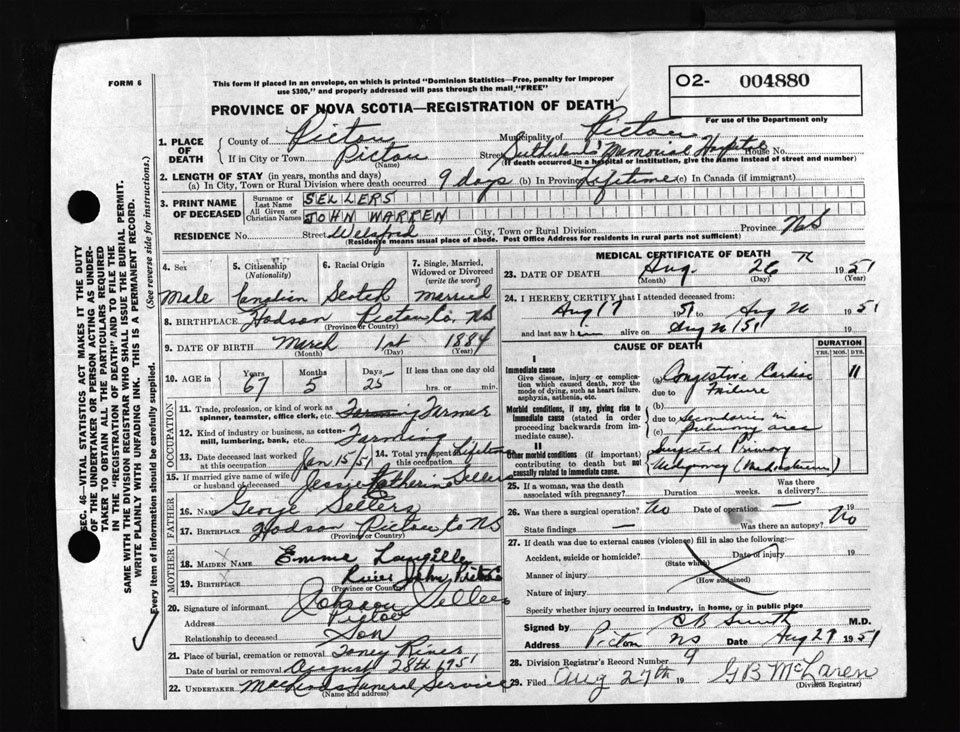 FORM 6
This form if placed in an envelope, on which is printed "Dominion Statistics—Free, penalty for improper
use $300," and properly addressed will pass through the mail "FREE"
O2- 004880
For use of the Department only
PROVINCE OF NOVA SCOTIA—REGISTRATION OF DEATH
1. PLACE OF DEATH
County of Pictou Municipality of Pictou
If in City or Town Pictou (Name) Street Sutherland's Memorial Hospital House No.
(If death occurred in a hospital or institution, give the name instead of street and number)
2. LENGTH OF STAY (in years, months and days)
(a) In City, Town or Rural Division where death occurred 9 days (b) In Province Lifetime (c) In Canada (if immigrant)
3. PRINT NAME OF DECEASED
Surname or Last Name SELLERS
All Given or Christian Names JOHN WARREN
RESIDENCE No. Street Welsford City, Town or Rural Division Province NS
(Residence means usual place of abode. Post Office Address for residents in rural parts not sufficient)
4. Sex 5. Citizenship (Nationality) 6. Racial Origin 7. Single, Married, Widowed or Divorced (write the word)
Male Canadian Scotch Married
8. BIRTHPLACE Hodson Pictou Co, NS
(Province or Country)
9. DATE OF BIRTH March 1st 1884
(Month) (Day) (Year)
10. AGE in Years 67 Months 5 Days 25 If less than one day
hrs. or min.
OCCUPATION
11. Trade, profession, or kind of work as spinner, teamster, office clerk, etc. Farming Farmer
12. Kind of industry or business, as cotten-mill, lumbering, bank, etc. Farming
13. Date deceased last worked at this occupation Jan 15/51 14. Total yrs spent at this occupation Lifetime
15. If married give name of wife or husband of deceased Jessie Katherine Sellers
FATHER
16. Name George Sellers
17. Birthplace Hodson Pictou Co NS
(Province or Country)
MOTHER
18. MAIDEN NAME Emma Langille
19. BIRTHPLACE River John, Pictou Co
(Province or Country)
20. Signature of informant Sellers
Address Pictou
Relationship to deceased Son
21. Place of burial, cremation or removal Toney River
Date of burial or removal August 28th 1951
22. UNDERTAKER Funeral Service
(Name and address)
MEDICAL CERTIFICATE OF DEATH
23. DATE OF DEATH Aug. 26th 1951
(Month) (Day) (Year)
24. I HEREBY CERTIFY that I attended deceased from:
Aug 17 1951 to Aug 26 1951
and last saw him alive on Aug 26/51 19
CAUSE OF DEATH
DURATION
YRS. MOS. DYS.
I
Immediate cause
Give disease, injury or complication which caused death, not the mode of dying, such as heart failure, asphyxia, asthenia, etc.
(a) Congestive Cardiac 11
due to Failure
Morbid conditions, if any, giving rise to immediate cause (stated in order proceeding backwards from immediate cause).
(b)
due to secondaries in
(c) pulmonary area
II
Other morbid conditions (if important) contributing to death but not causally related to immediate cause.
Suspected Primary
Malignancy (Mediastinum)
25. If a woman, was the death associated with pregnancy? Duration weeks. Was there a delivery?
26. Was there a surgical operation? No Date of operation —
State findings — Was there an autopsy? No
27. If death was due to external causes (violence) fill in also the following:—
Accident, suicide or homicide? Date of injury 19
(State which)
Manner of injury
(How sustained)
Nature of injury
Specify whether injury occurred in industry, in home, or in public place
Signed by CB Smith M.D.
Address Pictou NS Date Aug 27 1951
28. Division Registrar's Record Number 9
29. Filed Aug 27th 19 GB McLaren
(Division Registrar)
SEC. 46—VITAL STATISTICS ACT MAKES IT THE DUTY
OF THE UNDERTAKER OR PERSON ACTING AS UNDER-
TAKER TO OBTAIN ALL THE PARTICULARS REQUIRED
IN THE "REGISTRATION OF DEATH" AND TO FILE THE
SAME WITH THE DIVISION REGISTRAR WHO SHALL ISSUE THE BURIAL PERMIT.
WRITE PLAINLY WITH UNFADING INK. THIS IS A PERMANENT RECORD.
Every item of information should be carefully supplied. (See reverse side for instructions.)